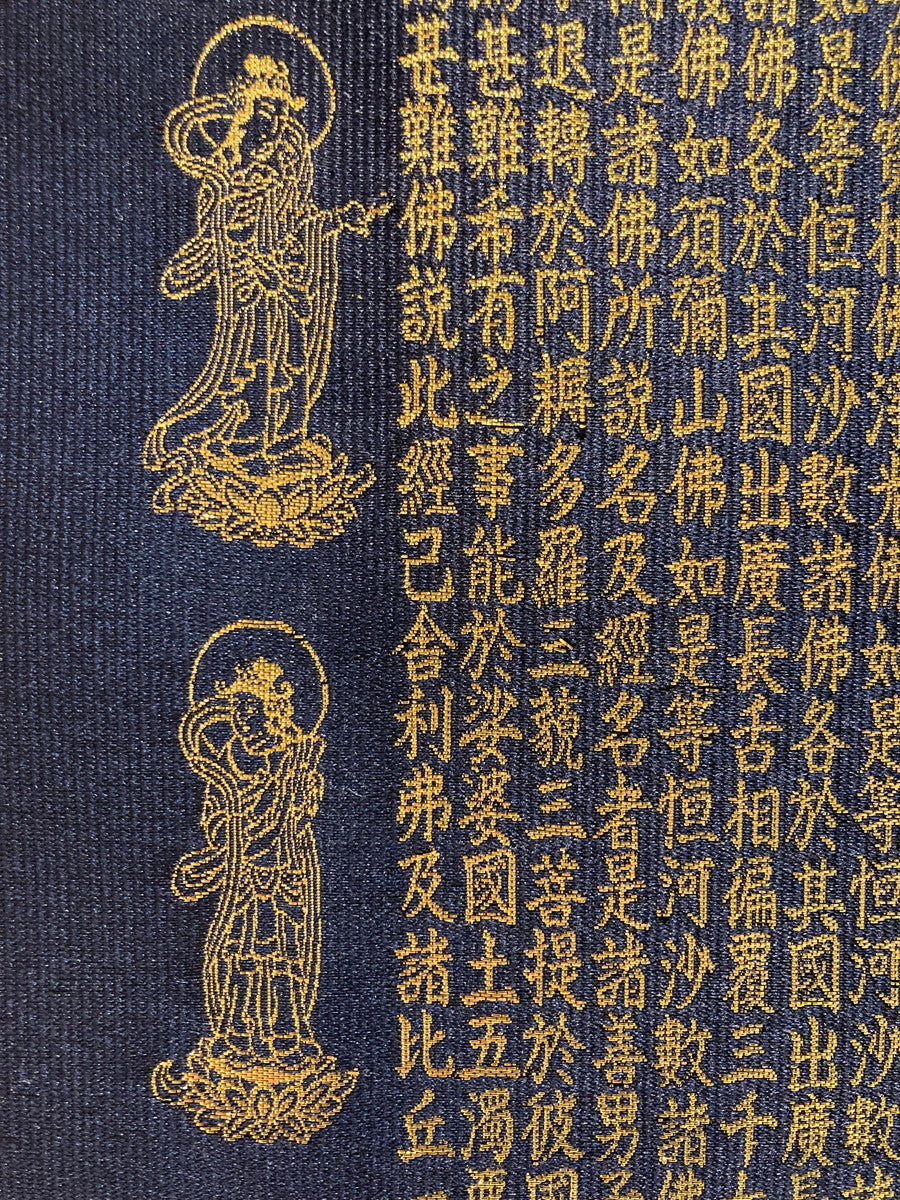 佛寶相佛淨光佛如是等恒河沙數
如是等恒河沙數諸佛各於其國出廣長
諸佛各於其國出廣長舌相偏覆三千
佛如須彌山佛如是等恒河沙數諸佛
是諸佛所說名及經名者是諸善男子
退轉於阿耨多羅三藐三菩提於彼國
甚難希有之事能於娑婆國土五濁惡
甚難佛說此經己舍利弗及諸比丘